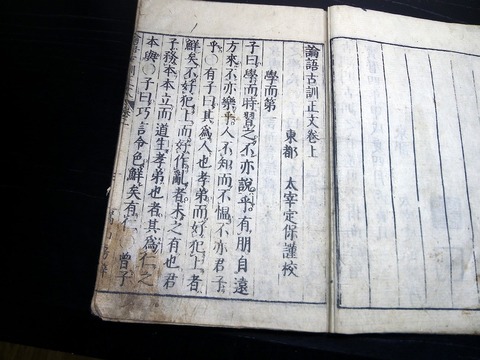 論語古訓正文卷上
東都 太宰定保謹校
學而第一
子曰學而時習之不亦說乎有朋自遠
方來不亦樂乎人不知而不慍不亦君子
乎○有子曰其為人也孝弟而好犯上者
鮮矣不好犯上而好作亂者未之有也君
子務本本立而道生孝弟也者其為仁之
本與○子曰巧言令色鮮矣有仁 曾子